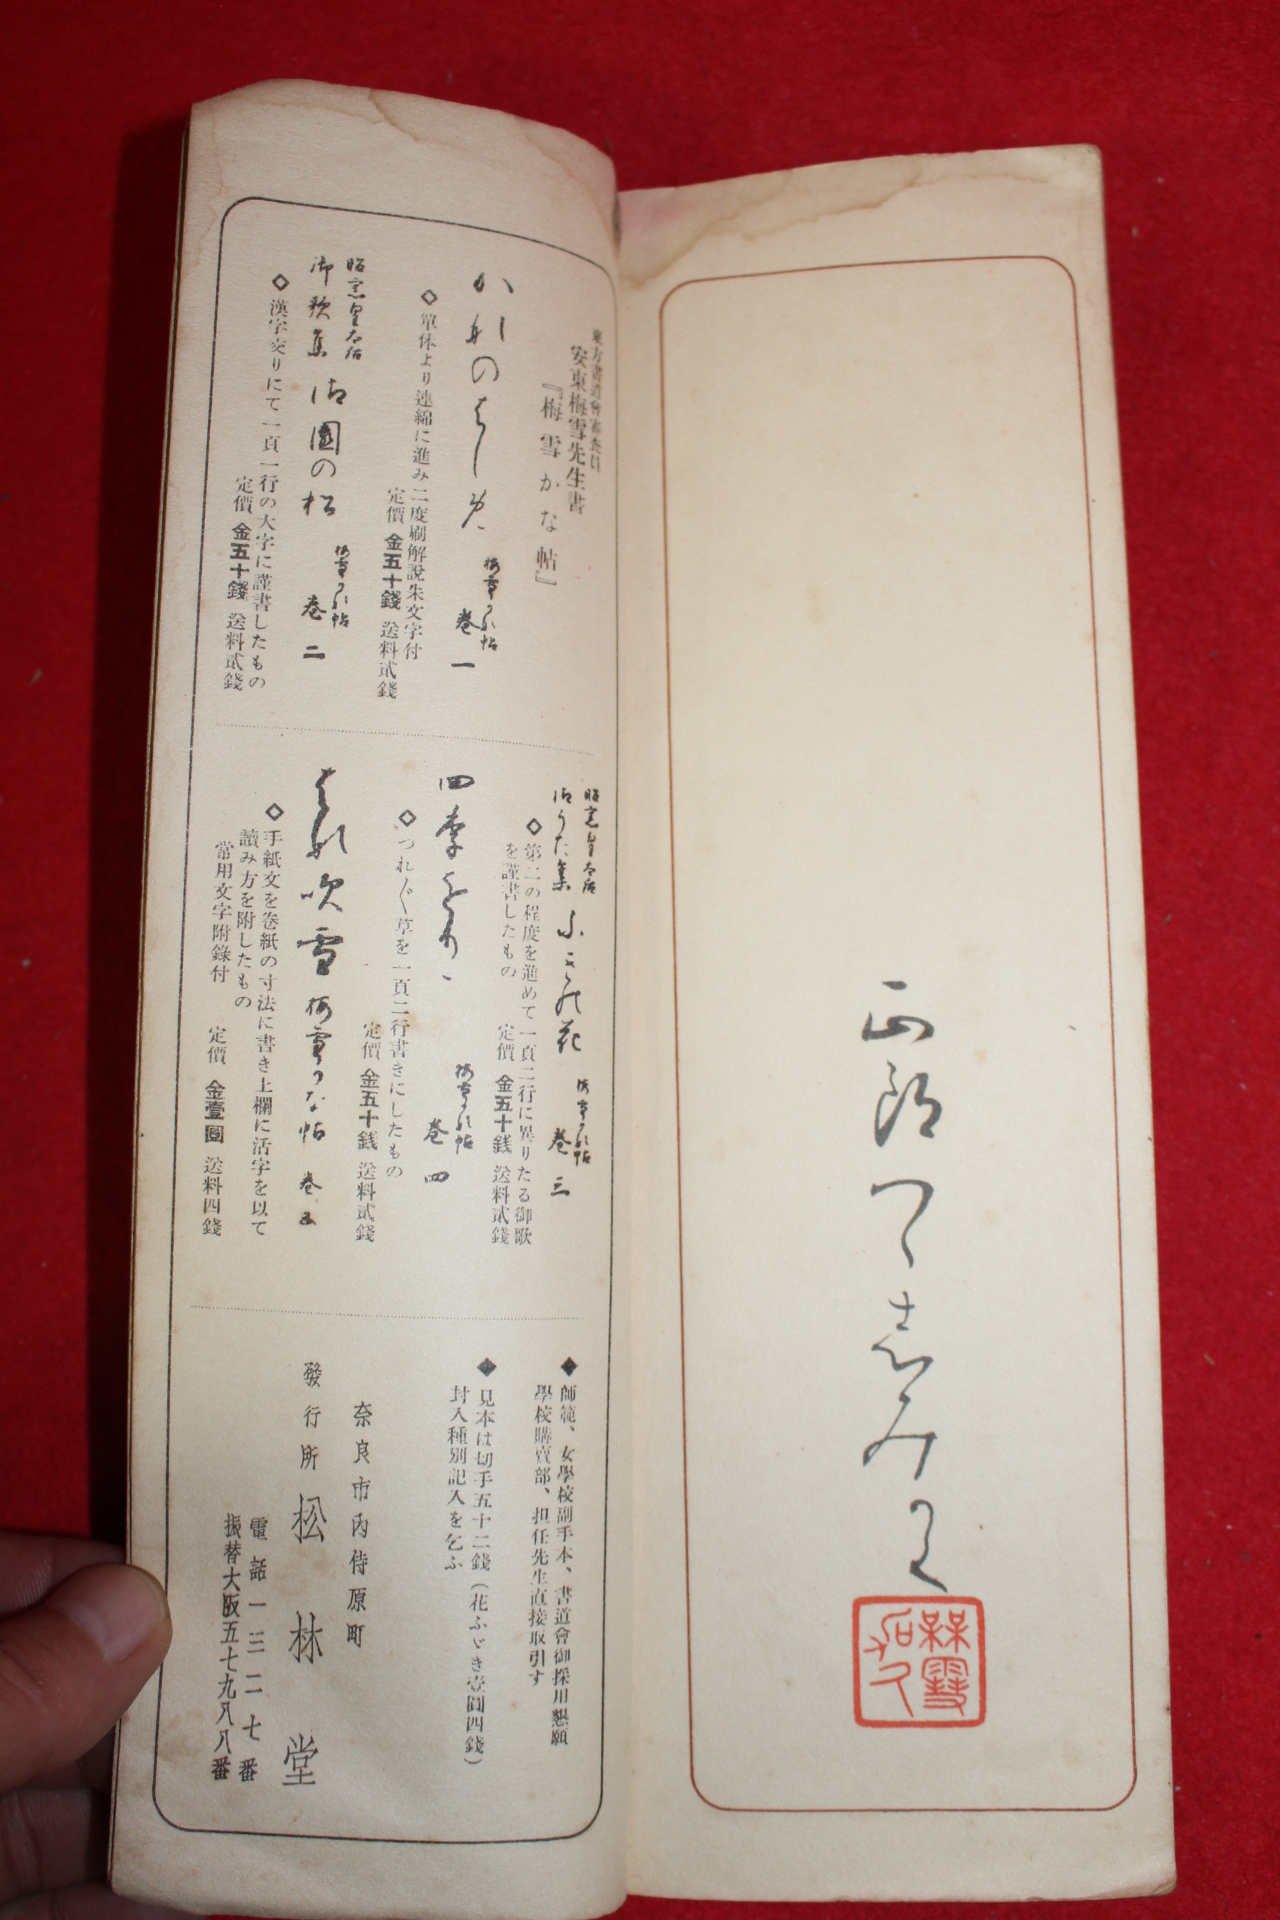 東方書道會審査員
安東梅雪先生書
『梅雪かな帖』
かなのはしめ
梅雪かな帖
卷一
◇單体より連綿に進み二度刷解說朱文字付
定價 金五十錢 送料貳錢
昭憲皇太后
御歌集
御園の松
梅雪かな帖
卷二
◇漢字交りにて一頁一行の大字に謹書したもの
定價 金五十錢 送料貳錢
昭憲皇太后
御うた集
梅雪かな帖
卷三
◇第二の程度を進めて一頁二行に異りたる御歌
を謹書したもの
定價 金五十錢 送料貳錢
四季をり〱
梅雪かな帖
卷四
◇つれ〲草を一頁二行書きにしたもの
定價 金五十錢 送料貳錢
はな吹雪
梅雪かな帖
卷五
◇手紙文を卷紙の寸法に書き上欄に活字を以て
讀み方を附したもの
常用文字附錄付
定價 金壹圓 送料四錢
◆師範、女學校副手本、書道會御採用懇願
學校購賣部、担任先生直接取引す
◆見本は切手五十二錢(花ふゞき壹圓四錢)
封入種別記入を乞ふ
奈良市內侍原町
發行所 松林堂
電話一三二七番
振替大阪五七九八八番